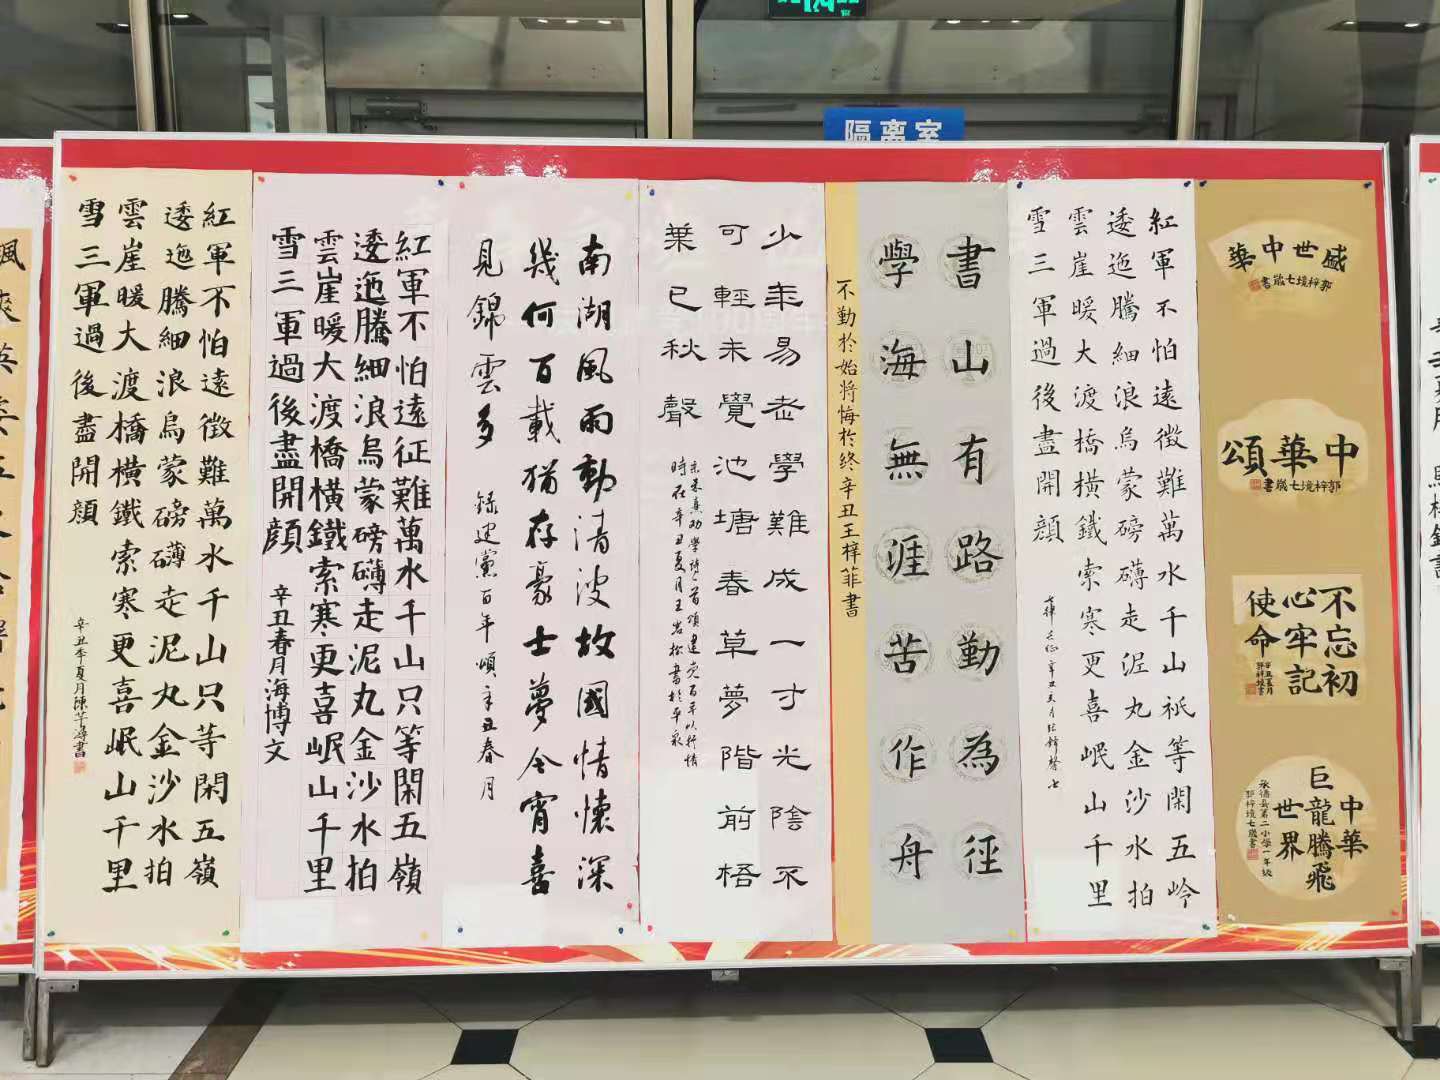 隔离室
紅軍不怕遠徵難萬水千山只等閑五嶺
逶迤騰細浪烏蒙磅礴走泥丸金沙水拍
雲崖暖大渡橋橫鐵索寒更喜岷山千里
雪三軍過後盡開顔
辛丑季夏月陳芊潯書
紅軍不怕遠征難萬水千山只等閑五嶺
逶迤騰細浪烏蒙磅礴走泥丸金沙水拍
雲崖暖大渡橋橫鐵索寒更喜岷山千里
雪三軍過後盡開顔
辛丑春月海博文
南湖風雨動清波故國情懷深
幾何百載猶存豪士夢今宵喜
見錦雲多
録建黨百年頌辛丑春月
少年易老學難成一寸光陰不
可輕未覺池塘春草夢階前梧
葉已秋聲
時在辛丑夏月王岩松書於平泉
書山有路勤為徑
學海無涯苦作舟
不勤於始將悔於終辛丑王梓菲書
紅軍不怕遠徵難萬水千山祇等閑五岭
逶迤騰細浪烏蒙磅礴走泥丸金沙水拍
雲崖暖大渡橋橫鐵索寒更喜岷山千里
雪三軍過後盡開顔
盛世中華
郭梓境七歲書
中華頌
郭梓境七歲書
不忘初
心牢記
使命
中華
巨龍騰飛
世界
承德縣第二小學一年級
郭梓境七歲書